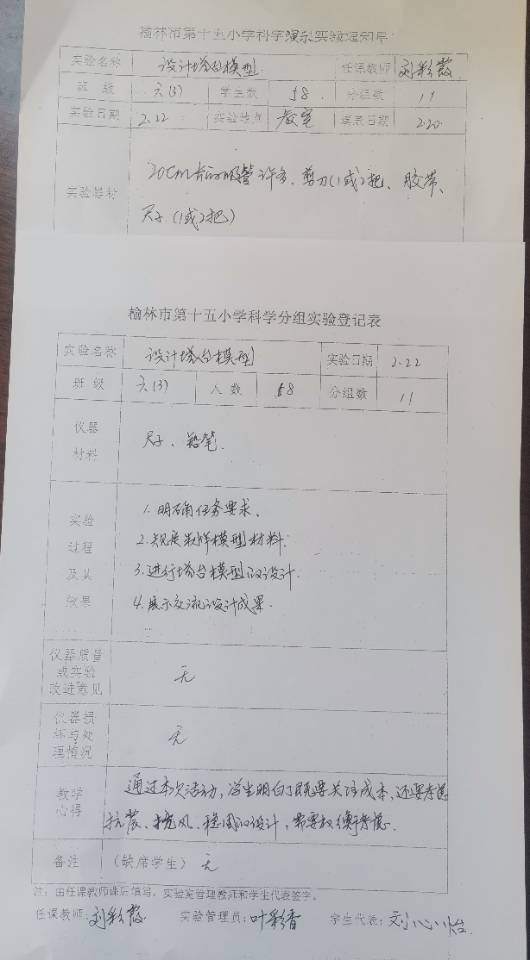 榆林市第十五小学科学演示实验通知单
实验名称 设计塔台模型 任课教师 刘彩霞
班 级 六(3) 学生数 58 分组数 11
实验日期 2.22 实验地点 教室 填表日期 2.20
实验器材 20cm长的吸管许多、剪刀(1或)2把、胶带、
尺子(1或2把)
榆林市第十五小学科学分组实验登记表
实验名称 设计塔台模型 实验日期 2.22
班 级 六(3) 人 数 58 分组数 11
仪器
材料
尺子、铅笔.
实验
过程
及其
效果
1.明确任务要求.
2.制作模型材料.
3.进行塔台模型的设计.
4.展示交流设计成果.
仪器质量
或实验
改进意见
无
仪器损
坏与处
理情况
无
教学
心得
通过本次活动,学生明白了既要关注成本,还要考虑
抗震、抗风、稳固的设计,需要权衡考虑.
备注 (缺席学生) 无
注:由任课教师课后填写,实验室管理教师和学生代表签字。
任课教师:刘彩霞 实验管理员:叶彩香 学生代表:刘心怡